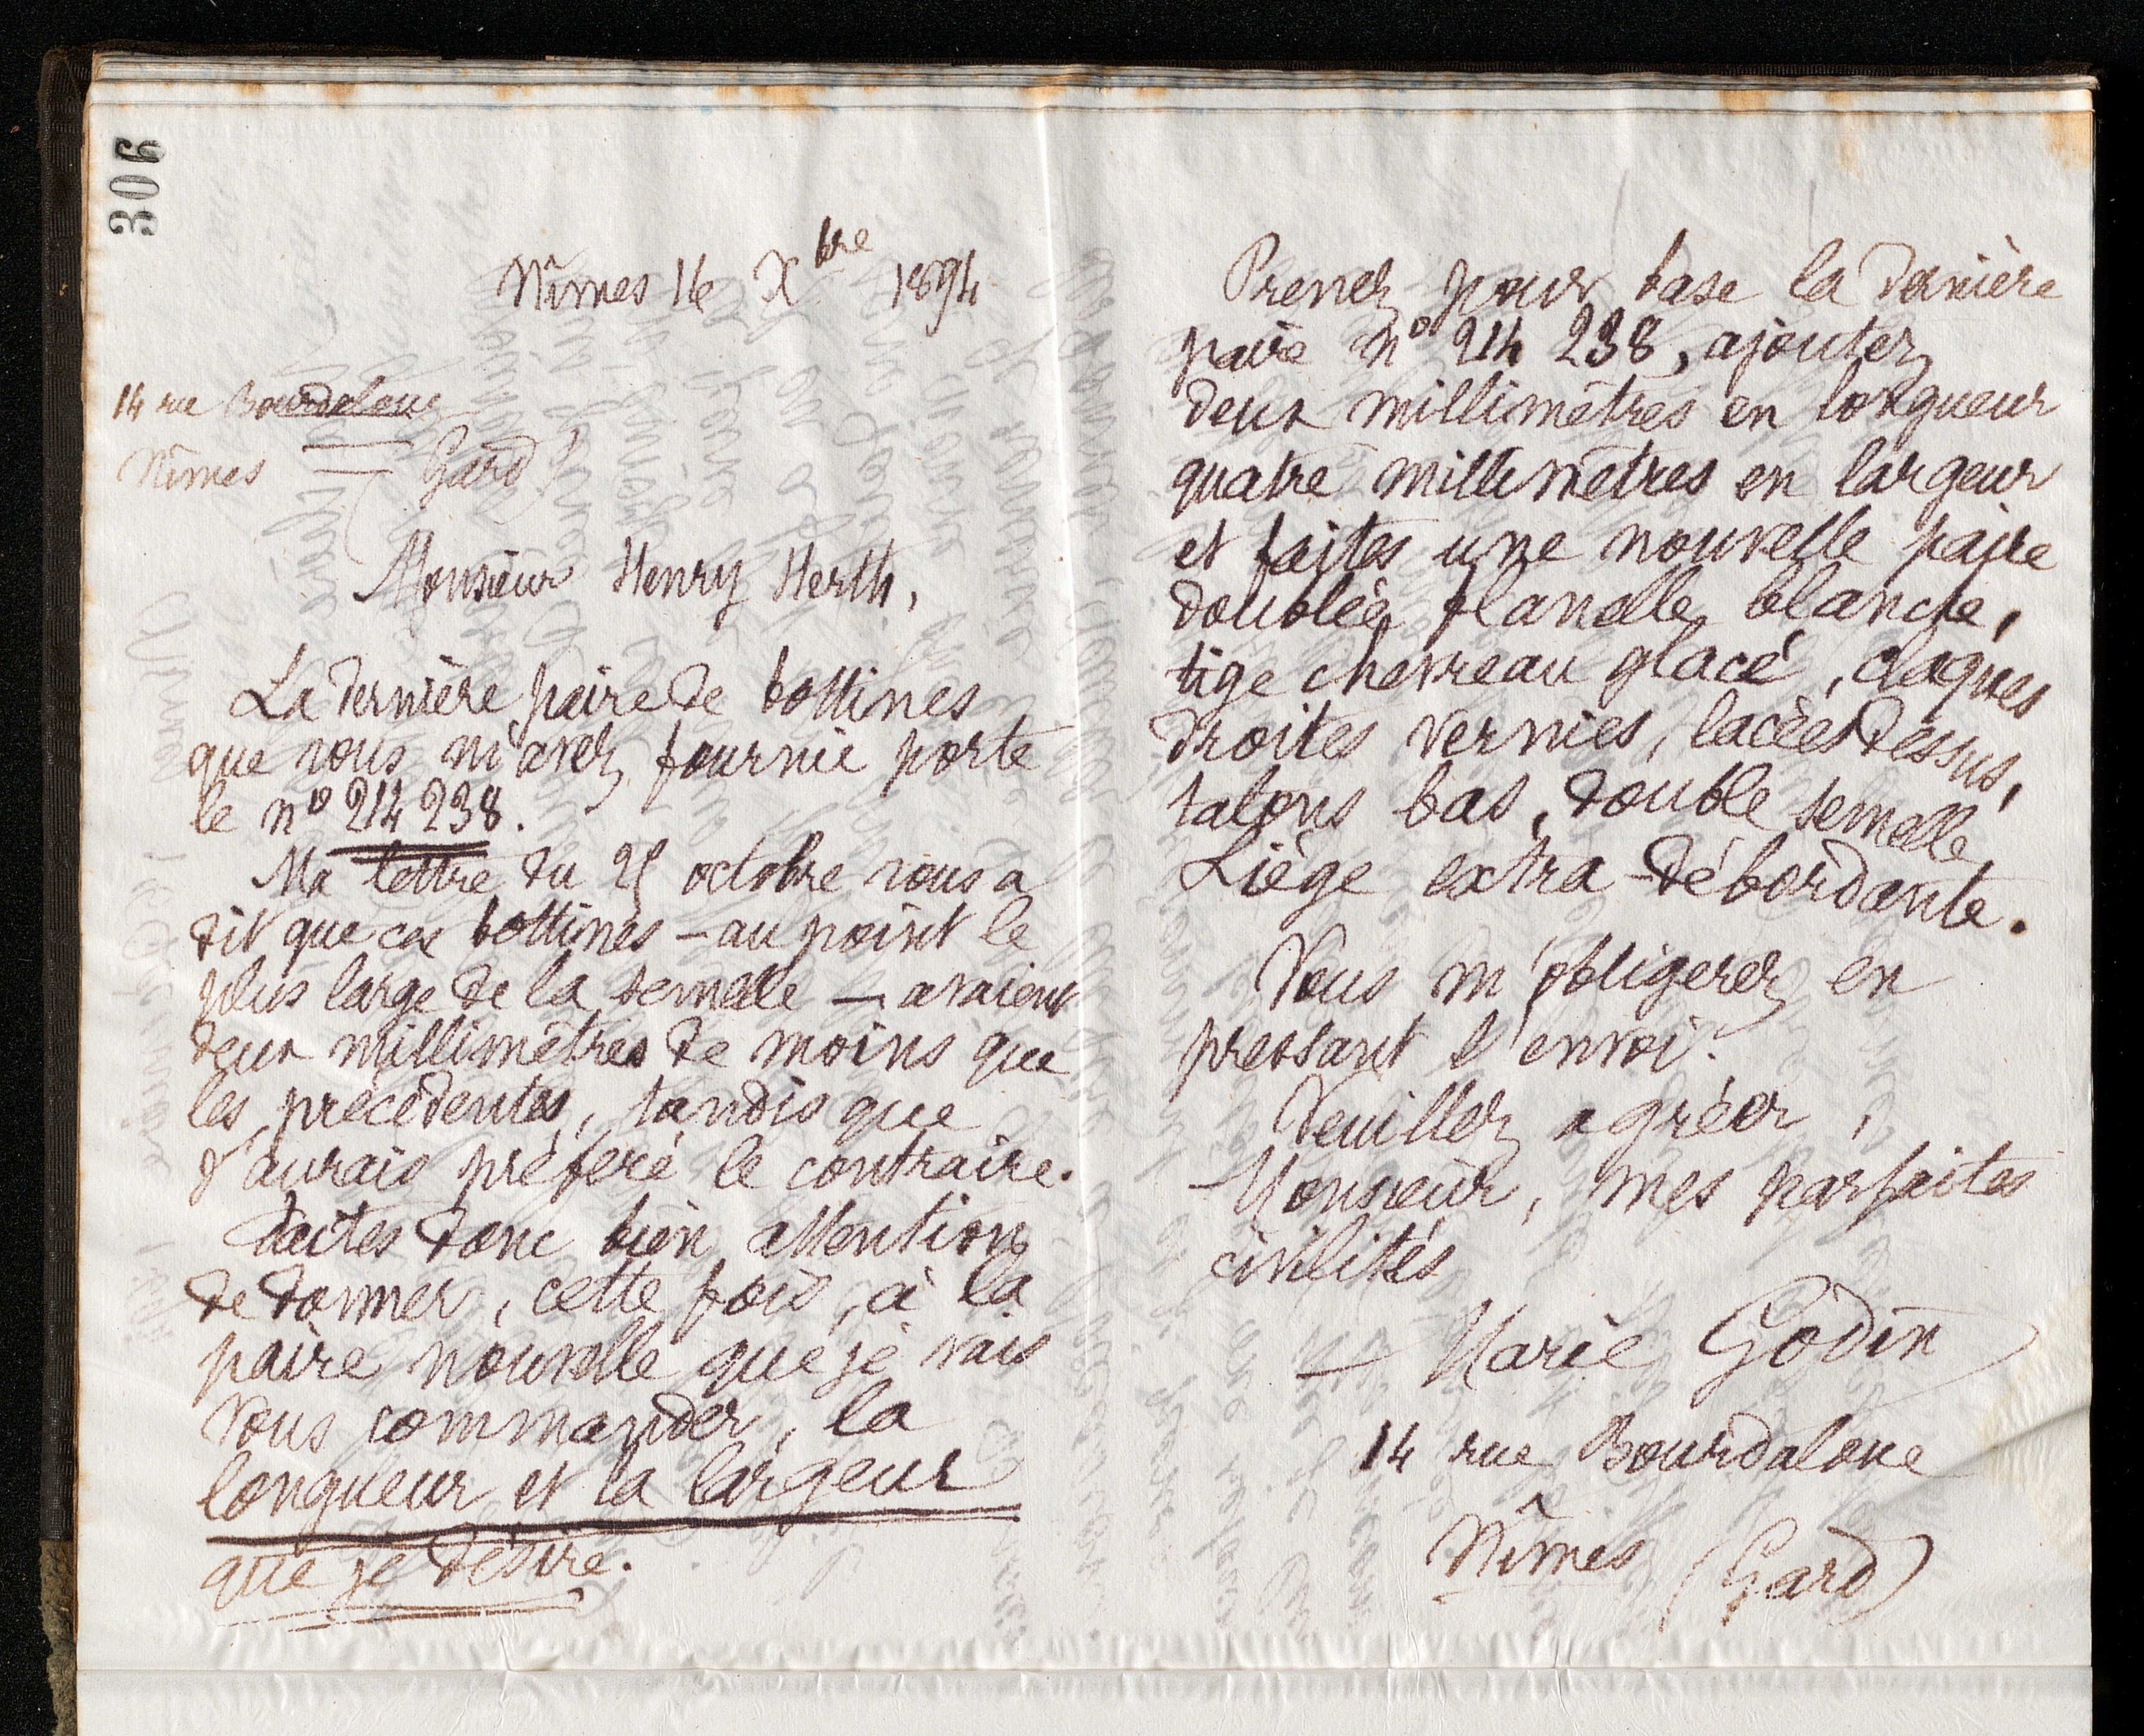 306
Nîmes 16 Xbre 1894
14 rue Bourdaloue
Nîmes (Gard)
Monsieur Henry Herth,
La dernière paire de bottines
que vous m'avez fournie porte
le no 214 238.
Ma lettre du octobre vous a
dit que ces bottines – au point le
plus large de la semelle – avaient
deux millimètres de moins que
les précédentes, tandis que
j'aurais préféré le contraire.
Faites donc bien attention
de donner, cette fois, à la
paire nouvelle que je vais
vous commander, la
longueur et la largeur
que je désire.
Prenez pour base la dernière
paire no 214 238, ajoutez
deux millimètres en longueur
quatre millimètres en largeur
et faites une nouvelle paire
doublée flanelle blanche,
tige chevreau glacé, claques
droites vernies, lacées dessus,
talons bas, double semelle
Liège extra-débordante.
Vous m'obligerez en
pressant l'envoi.
Veuillez agréer,
Monsieur, mes parfaites
civilités
Marie Godin
14 rue Bourdaloue
Nîmes (Gard)